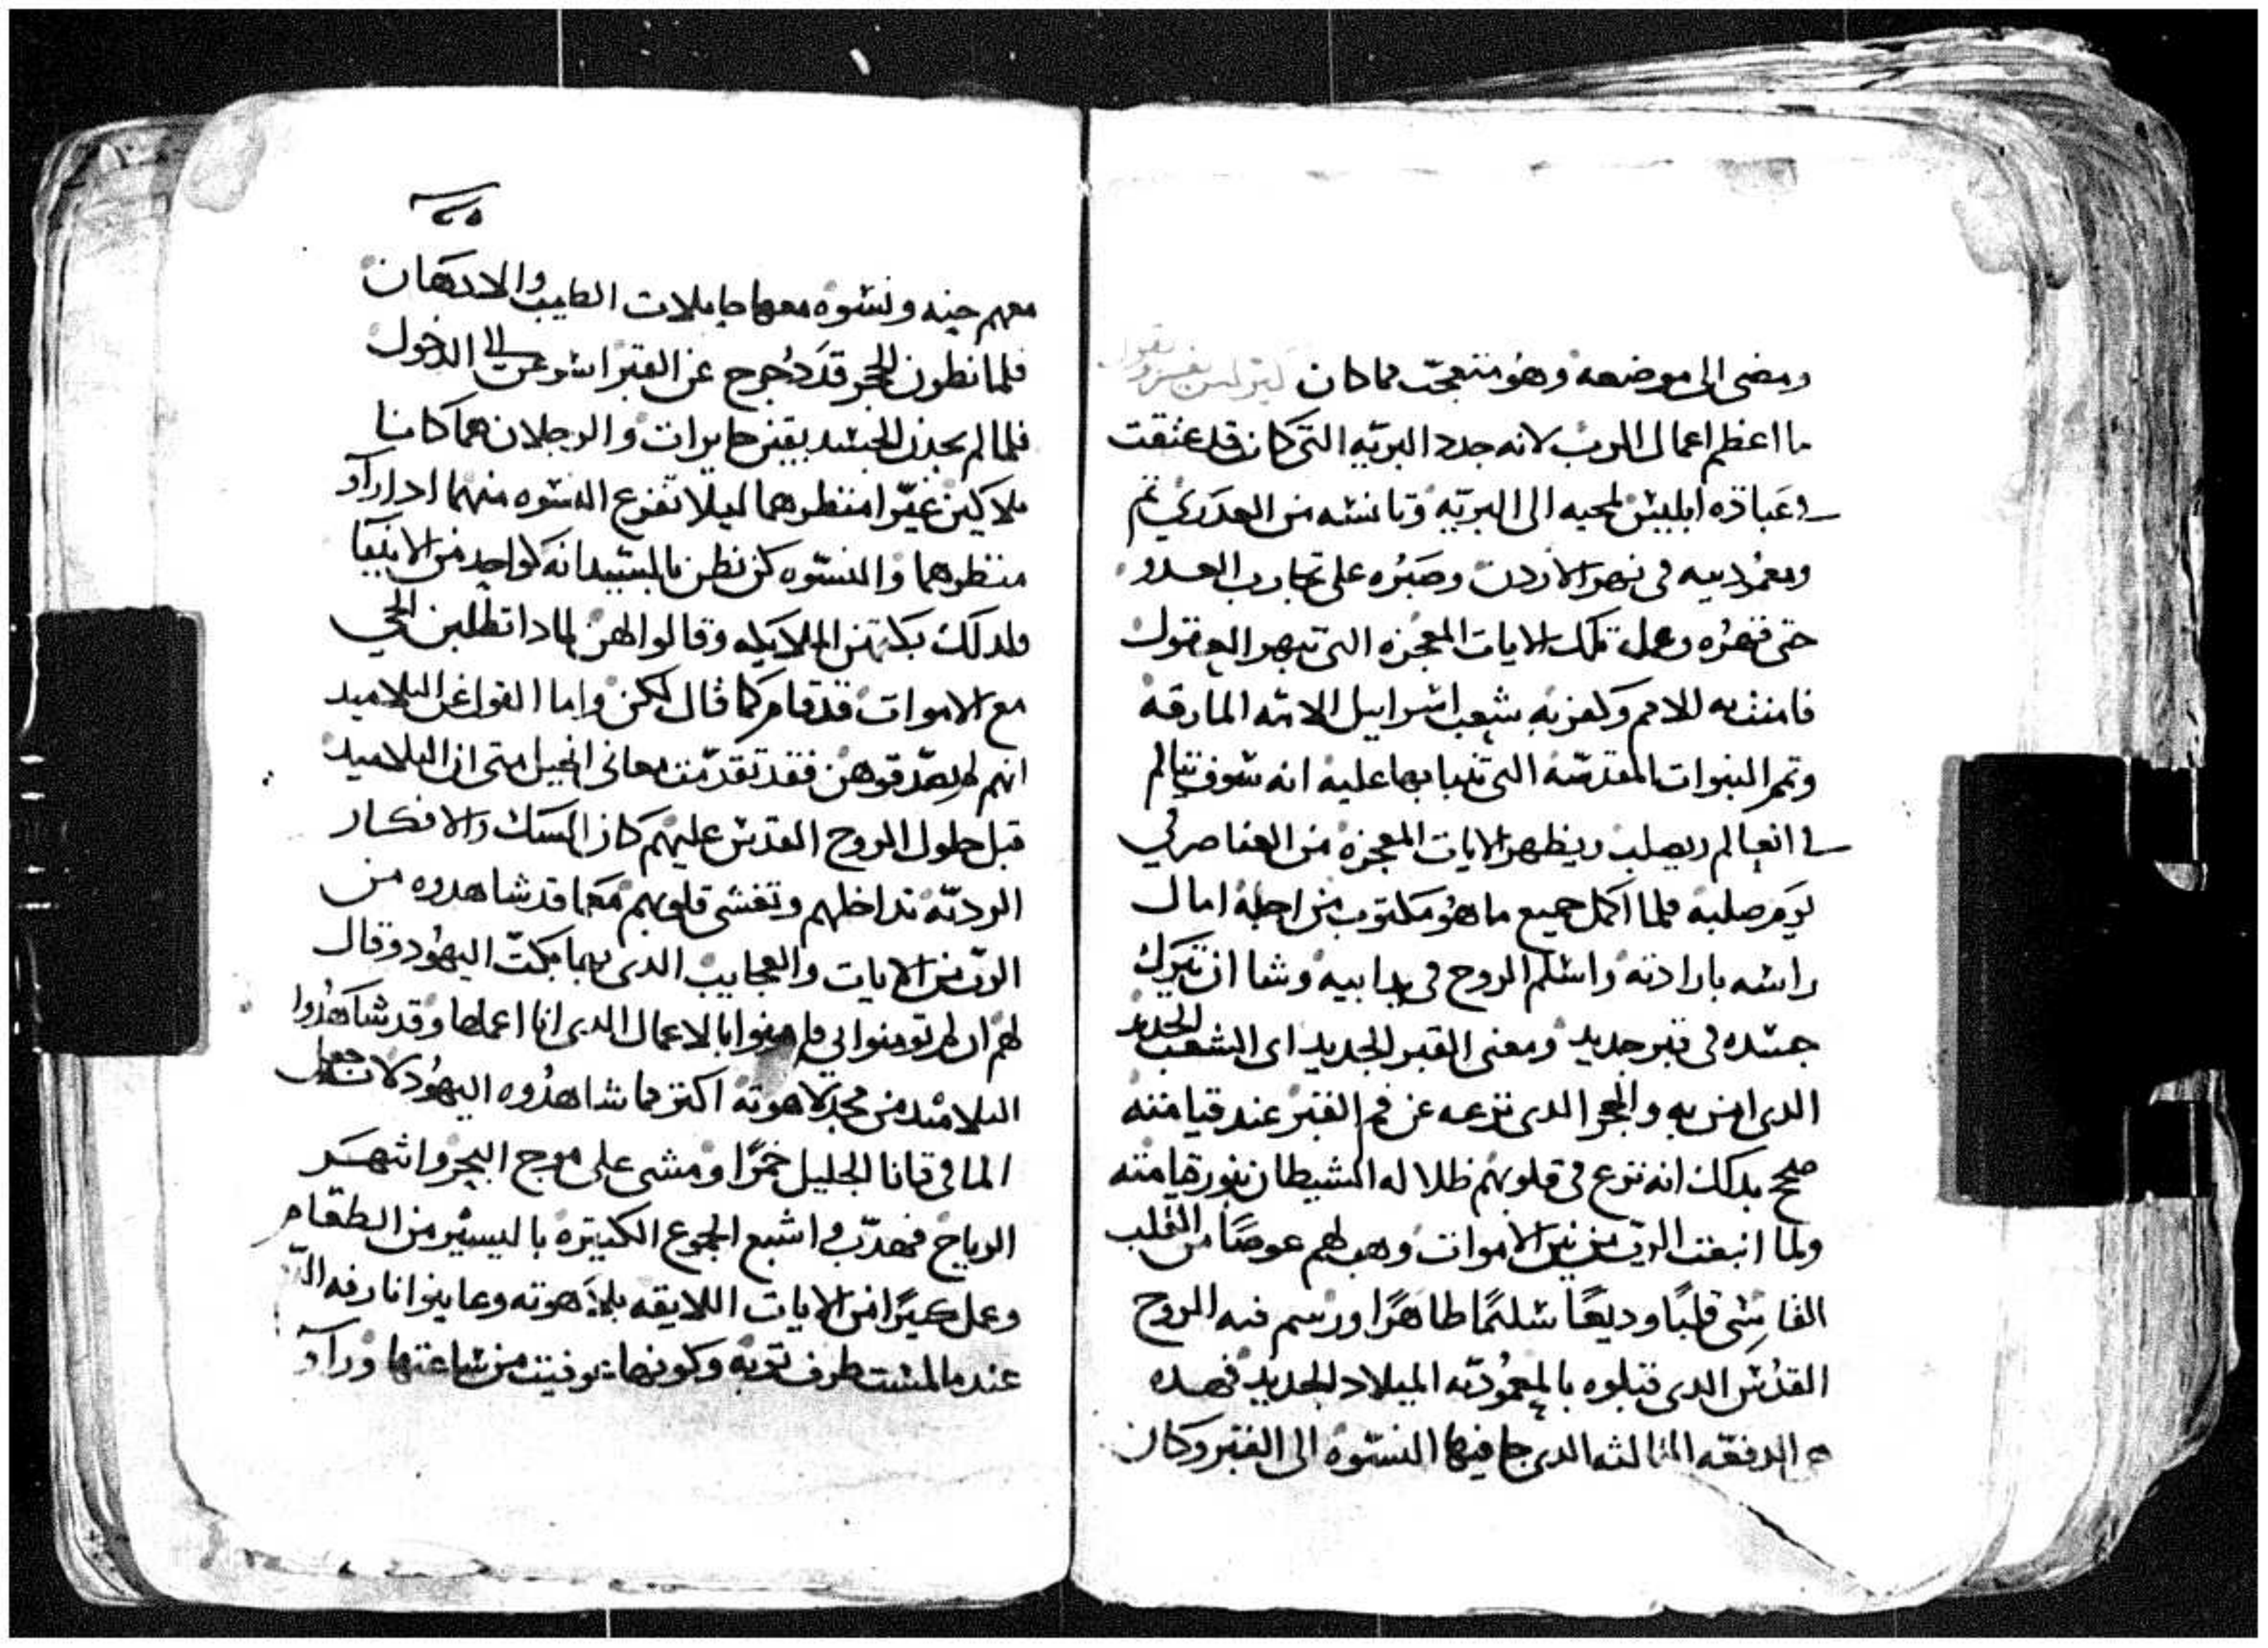 ومضى الى موضعه وهو متعجب مما كان
ما اعظم اعمال الرب لانه جدد البريه التى كانت قد عتقت
فى عبادة ابليس لمحبه الى البريه وتانسه من العدرى
ومعموديته فى نهر الاردن وصبره على تجارب العدو
حتى قهره وعمل تلك الايات المعجزه التى تبهر العقول
فامنت به الامم وكفر به شعب اسراييل الامه المارقه
وتمم النبوات المقدسه التى تنبا بها عليه انه سوف يتالم
فى العالم ويصلب ويظهر الايات المعجزه من العناصر فى
يوم صلبه فلما اكمل جميع ما هو مكتوب من اجله امال
راسه بارادته واسلم الروح فى يد ابيه وشا ان يترك
جسده فى قبر جديد ومعنى القبر الجديد اى الشعب الجديد
الدى امن به والحجر الدى نزعه عن فم القبر عند قيامته
صحح بدلك انه نزع فى قلوبهم ظلاله الشيطان بنور قيامته
ولما انبعث الرب من بين الاموات وهب لهم عوضا من القلب
القاسى قلبًا وديعًا سلمًا طاهرًا ورسم فيه الروح
القدس الدى قبلوه بالمعموديه الميلاد الجديد فهده
هى الدفعه الثالثه الدى جا فيها النسوه الى القبر وكان
معهم حينه ونسوه معها حاملات الطيب والادهان
فلما نظرن الحجر قد دُحرج عن القبر اسرعن الى الدخول
فلما لم يجدن الجسد بقين حايرات والرجلان هما كانا
ملاكين غيّرا منظرهما ليلا تفزع النسوه منهما ادا راو
منظرهما والنسوه كن نظرن بالسيد انه كواحد من الانبيا
ولدلك بكتهن الملايكه وقالوا لهن لمادا تطلبن الحي
مع الاموات قد قام كما قال لكن واما القول عن التلاميد
انهم لم يصدقوهن فقد تقدمت معانى انجيل متى ان التلاميد
قبل حلول الروح القدس عليهم كان الشك والافكار
الرديّه تداخلهم وتغشى قلوبهم مع ما قد شاهدوه من
الرب من الايات والعجايب الدى بها بكت اليهود وقال
لهم ان لم تومنوا بي فامنوا بالاعمال الدى انا اعملها وقد شاهدوا
التلاميد من مجد لاهوته اكتر مما شاهدوه اليهود لانه جعل
الما فى قانا الجليل خمرًا ومشى على موج البحر وانتهر
الرياح فهدت واشبع الجموع الكتيره باليسير من الطعام
وعمل كتيرًا من الايات اللايقه بلاهوته وعاينوا نارفه
عندما لمست طرف توبه وكونها برئت من ساعتها وراو